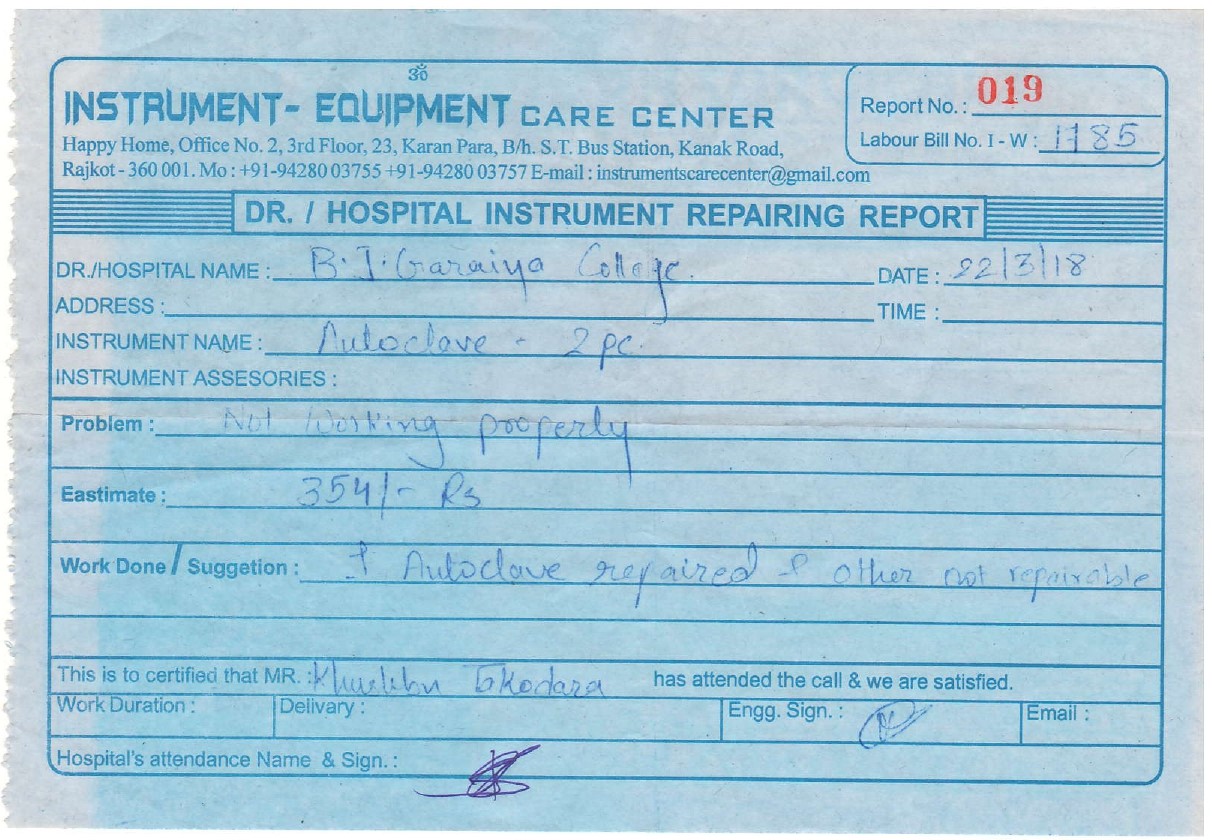 ॐ
INSTRUMENT- EQUIPMENT CARE CENTER
Happy Home, Office No. 2, 3rd Floor, 23, Karan Para, B/h. S.T. Bus Station, Kanak Road,
Rajkot - 360 001. Mo : +91-94280 03755 +91-94280 03757 E-mail : instrumentscarecenter@gmail.com
Report No. : 019
Labour Bill No. I - W : 1185
DR. / HOSPITAL INSTRUMENT REPAIRING REPORT
DR./HOSPITAL NAME : B.J. Garaiya College. DATE : 22/3/18
ADDRESS : TIME :
INSTRUMENT NAME : Autoclave - 2 pc.
INSTRUMENT ASSESORIES :
Problem : Not Working properly
Eastimate : 354/- Rs
Work Done / Suggetion : 1 Autoclave repaired & other not repairable
This is to certified that MR. : has attended the call & we are satisfied.
Work Duration : Delivary : Engg. Sign. : Email :
Hospital's attendance Name & Sign. :